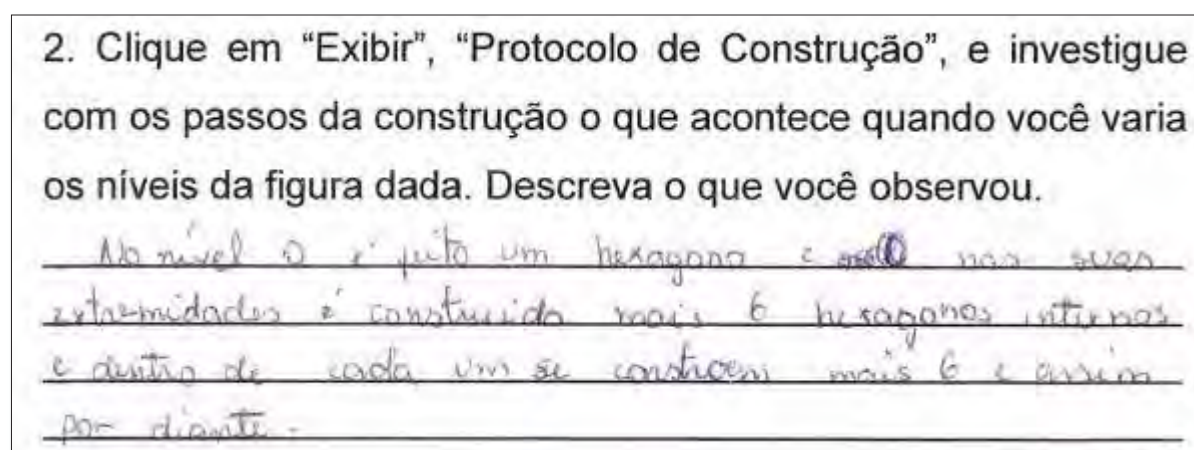 2. Clique em “Exibir”, “Protocolo de Construção”, e investigue
com os passos da construção o que acontece quando você varia
os níveis da figura dada. Descreva o que você observou.
No nível 0 é feito um hexagono e nas suas
extremidades é construido mais 6 hexagonos internos
e dentro de cada um se constroem mais 6 e assim
por diante.